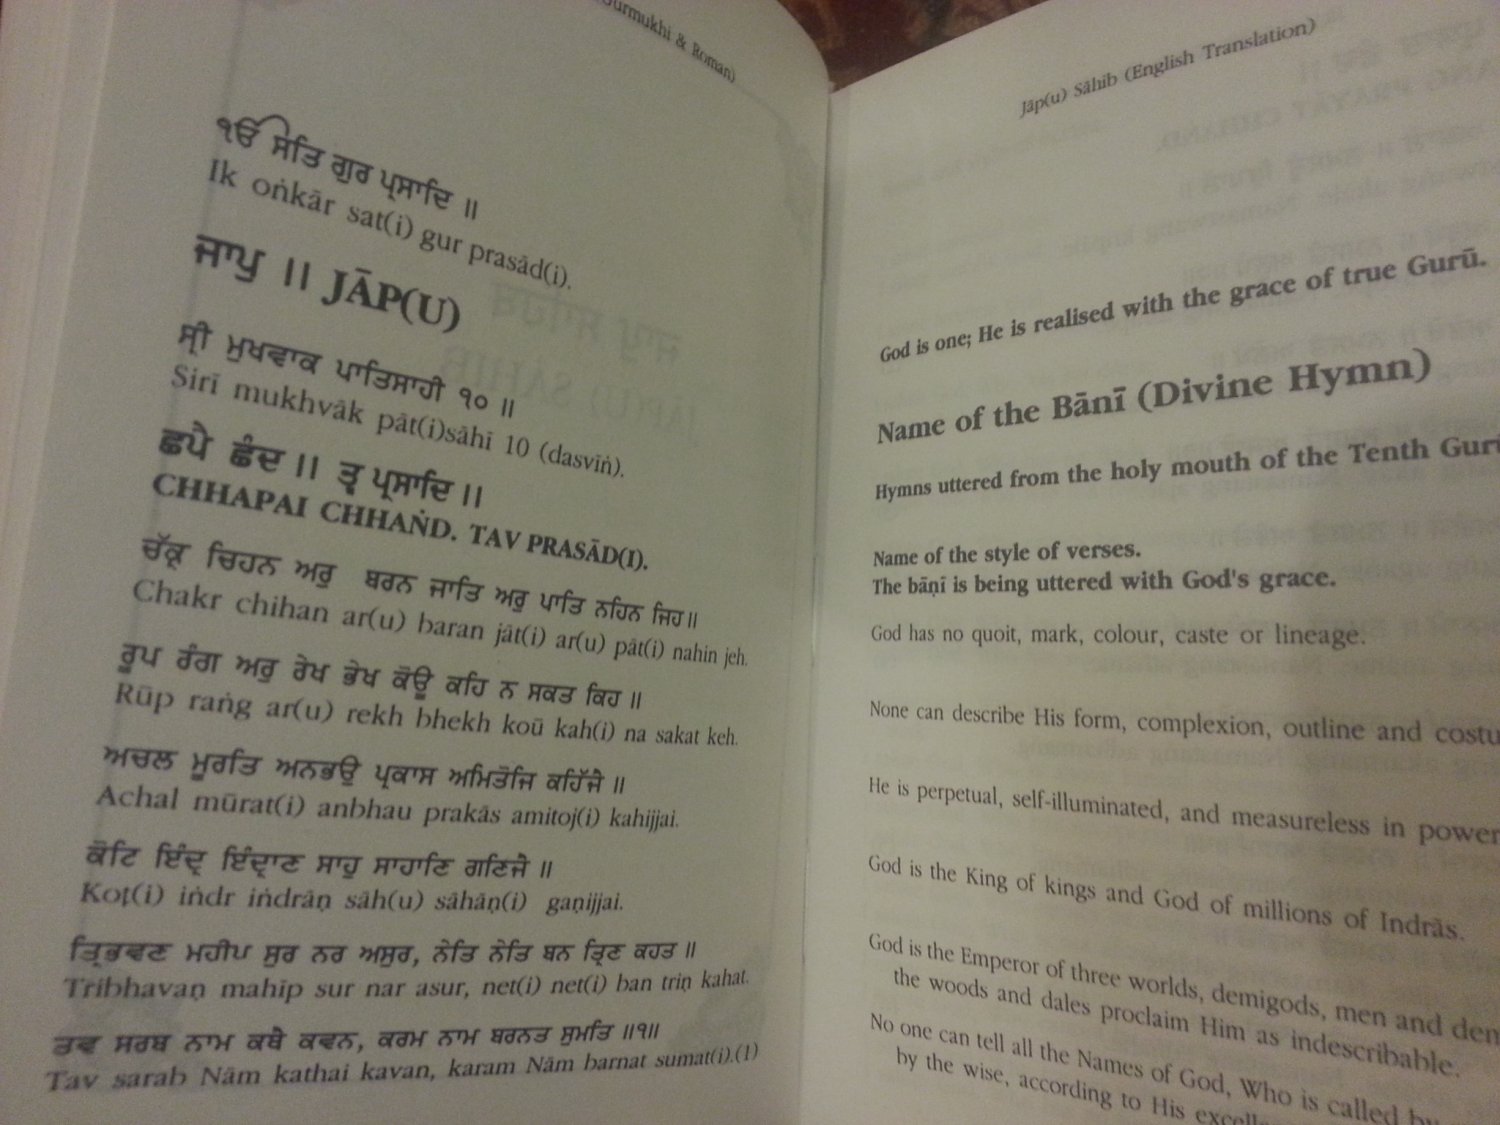 Gurmukhi & Roman)
ੴ ਸਤਿ ਗੁਰ ਪ੍ਰਸਾਦਿ ॥
Ik oṅkār sat(i) gur prasād(i).
ਜਾਪੁ ॥ JĀP(U)
ਸ੍ਰੀ ਮੁਖਵਾਕ ਪਾਤਿਸਾਹੀ ੧੦ ॥
Sirī mukhvāk pāt(i)sāhī 10 (dasvīṅ).
ਛਪੈ ਛੰਦ ॥ ਤ੍ਵ ਪ੍ਰਸਾਦਿ ॥
CHHAPAI CHHAṄD. TAV PRASĀD(I).
ਚੱਕ੍ਰ ਚਿਹਨ ਅਰੁ ਬਰਨ ਜਾਤਿ ਅਰੁ ਪਾਤਿ ਨਹਿਨ ਜਿਹ॥
Chakr chihan ar(u) baran jāt(i) ar(u) pāt(i) nahin jeh.
ਰੂਪ ਰੰਗ ਅਰੁ ਰੇਖ ਭੇਖ ਕੋਊ ਕਹਿ ਨ ਸਕਤ ਕਿਹ॥
Rūp raṅg ar(u) rekh bhekh koū kah(i) na sakat keh.
ਅਚਲ ਮੂਰਤਿ ਅਨਭਉ ਪ੍ਰਕਾਸ ਅਮਿਤੋਜਿ ਕਹਿੱਜੈ॥
Achal mūrat(i) anbhau prakās amitoj(i) kahijjai.
ਕੋਟਿ ਇੰਦ੍ਰ ਇੰਦ੍ਰਾਣ ਸਾਹੁ ਸਾਹਾਣਿ ਗਣਿਜੈ॥
Koṭ(i) iṅdr iṅdrāṇ sāh(u) sāhāṇ(i) gaṇijjai.
ਤ੍ਰਿਭਵਣ ਮਹੀਪ ਸੁਰ ਨਰ ਅਸੁਰ, ਨੇਤਿ ਨੇਤਿ ਬਨ ਤ੍ਰਿਣ ਕਹਤ॥
Tribhavaṇ mahīp sur nar asur, net(i) net(i) ban triṇ kahat.
ਤਵ ਸਰਬ ਨਾਮ ਕਥੈ ਕਵਨ, ਕਰਮ ਨਾਮ ਬਰਨਤ ਸੁਮਤਿ ॥੧॥
Tav sarab Nām kathai kavan, karam Nām barnat sumat(i).(1)
Jāp(u) Sāhib (English Translation)
God is one; He is realised with the grace of true Gurū.
Name of the Bānī (Divine Hymn)
Hymns uttered from the holy mouth of the Tenth Gur
Name of the style of verses.
The bāṇī is being uttered with God's grace.
God has no quoit, mark, colour, caste or lineage.
None can describe His form, complexion, outline and costu
He is perpetual, self-illuminated, and measureless in power
God is the King of kings and God of millions of Indrās.
God is the Emperor of three worlds, demigods, men and dem
the woods and dales proclaim Him as indescribable.
No one can tell all the Names of God, Who is called by
by the wise, according to His excelle